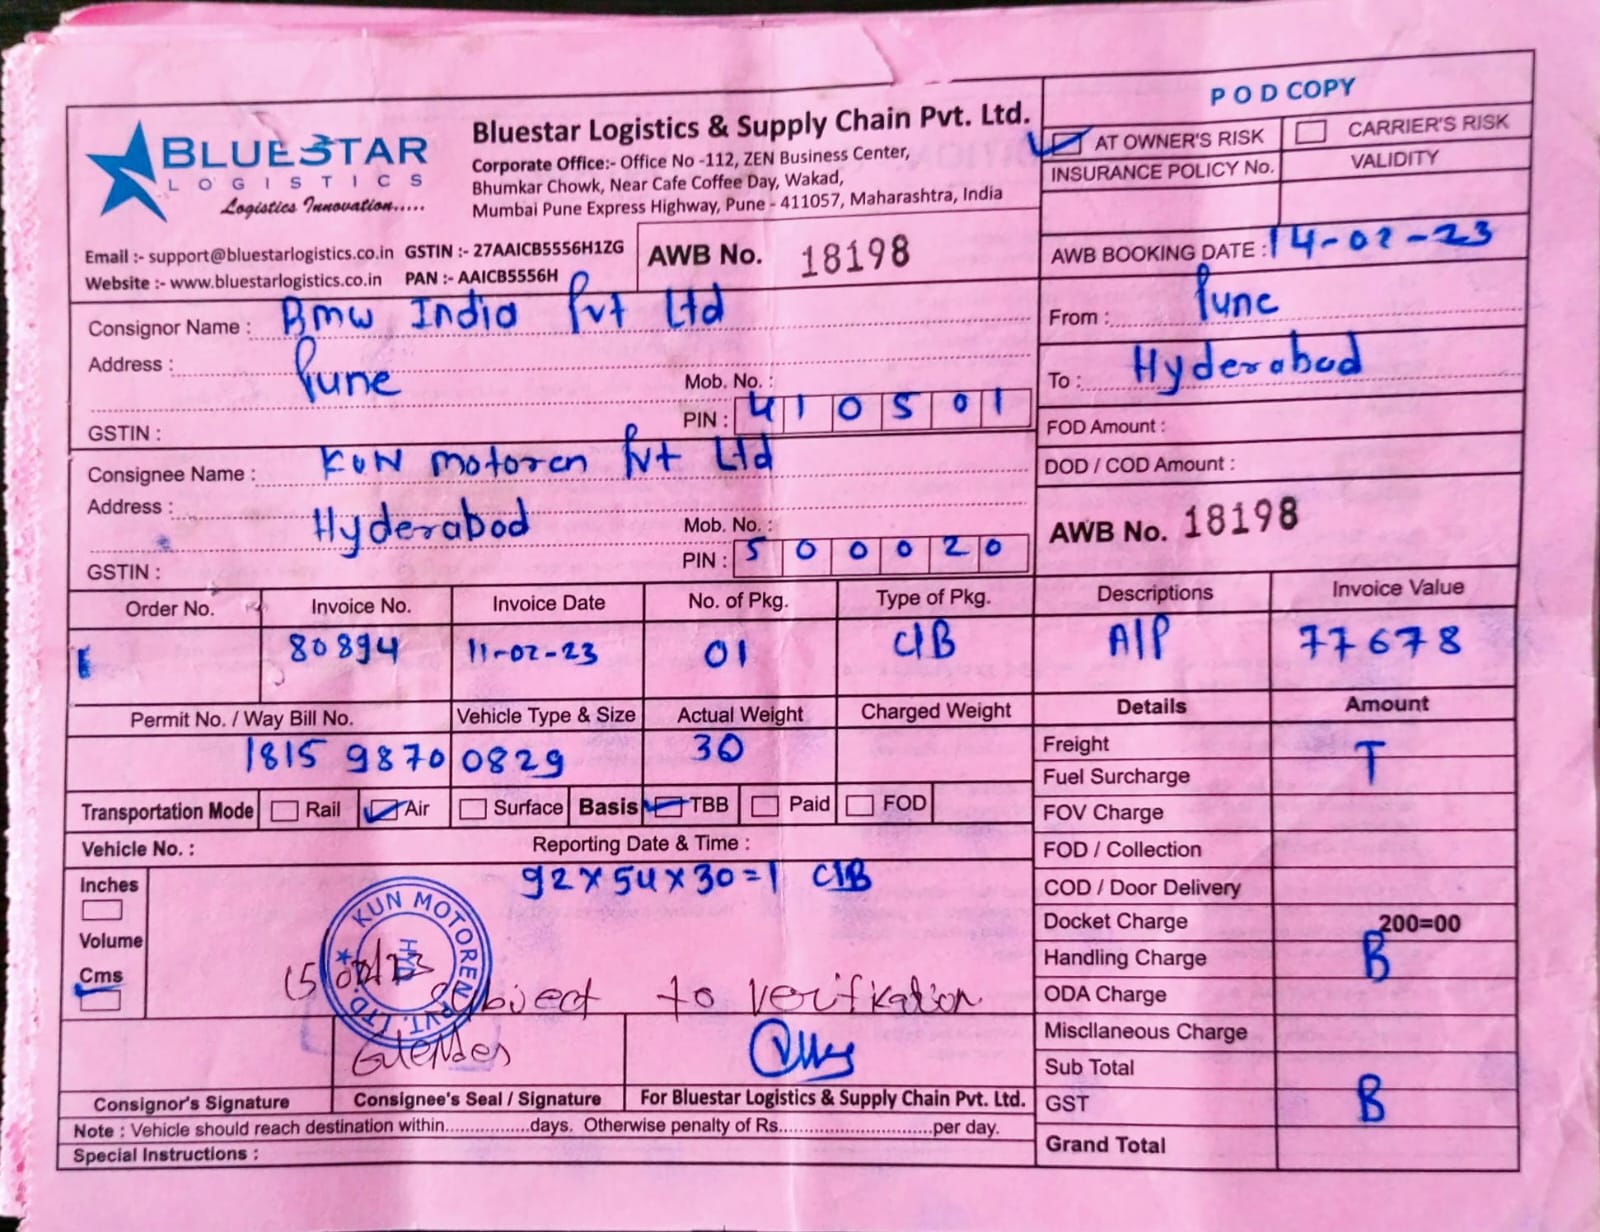 POD COPY
BLUESTAR
LOGISTICS
Logistics Innovation.....
Bluestar Logistics & Supply Chain Pvt. Ltd.
Corporate Office:- Office No -112, ZEN Business Center,
Bhumkar Chowk, Near Cafe Coffee Day, Wakad,
Mumbai Pune Express Highway, Pune - 411057, Maharashtra, India
AT OWNER'S RISK CARRIER'S RISK
INSURANCE POLICY No. VALIDITY
Email :- support@bluestarlogistics.co.in GSTIN :- 27AAICB5556H1ZG
Website :- www.bluestarlogistics.co.in PAN :- AAICB5556H
AWB No. 18198
AWB BOOKING DATE : 14-02-23
Consignor Name : Bmw India Pvt Ltd
Address : Pune
Mob. No. :
PIN : 410501
GSTIN :
From : Pune
To : Hyderabad
FOD Amount :
DOD / COD Amount :
Consignee Name : KUN Motoren Pvt Ltd
Address : Hyderabad
Mob. No. :
PIN : 500020
GSTIN :
AWB No. 18198
Order No. Invoice No. Invoice Date No. of Pkg. Type of Pkg. Descriptions Invoice Value
80894 11-02-23 01 C/B A/P 77678
Permit No. / Way Bill No. Vehicle Type & Size Actual Weight Charged Weight Details Amount
1815 9870 0829 30
Freight T
Fuel Surcharge
Transportation Mode Rail Air Surface Basis TBB Paid FOD
FOV Charge
Vehicle No. : Reporting Date & Time :
FOD / Collection
92x54x30=1 C/B
Inches
Volume
Cms
COD / Door Delivery
Docket Charge 200=00
Handling Charge B
ODA Charge
Miscllaneous Charge
Sub Total
GST B
Grand Total
KUN MOTOREN PVT. LTD.
HYD
15/02/23
Subject to verifikation
Consignor's Signature Consignee's Seal / Signature For Bluestar Logistics & Supply Chain Pvt. Ltd.
Note : Vehicle should reach destination within................days. Otherwise penalty of Rs............................per day.
Special Instructions :